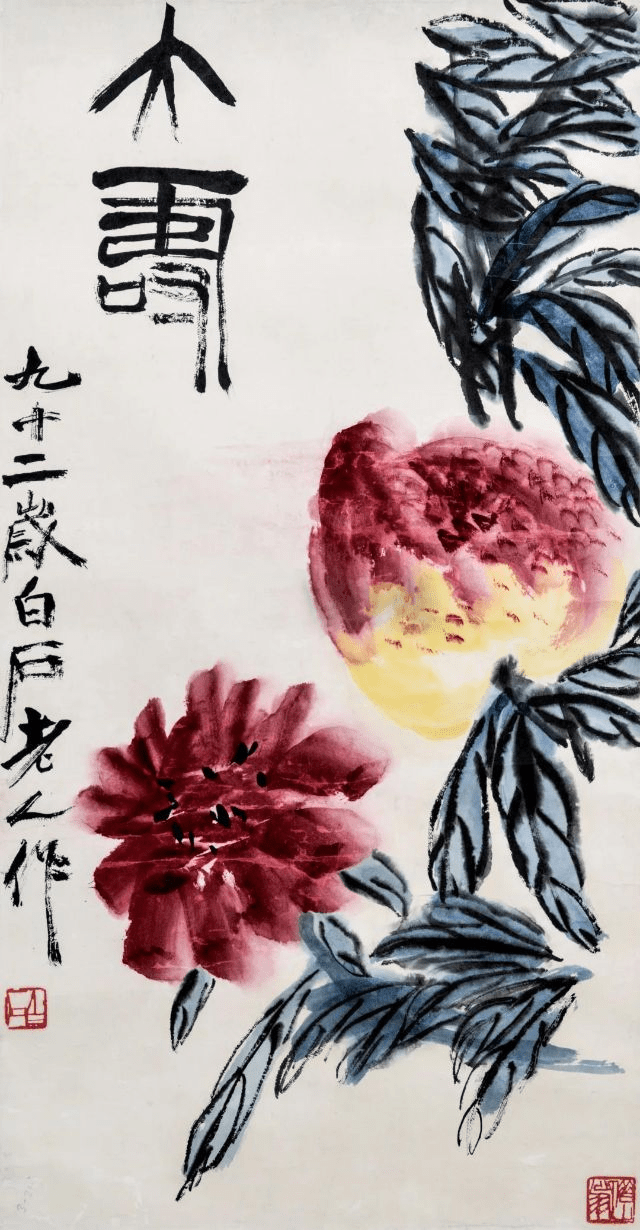 大壽
九十二歲白石老人作